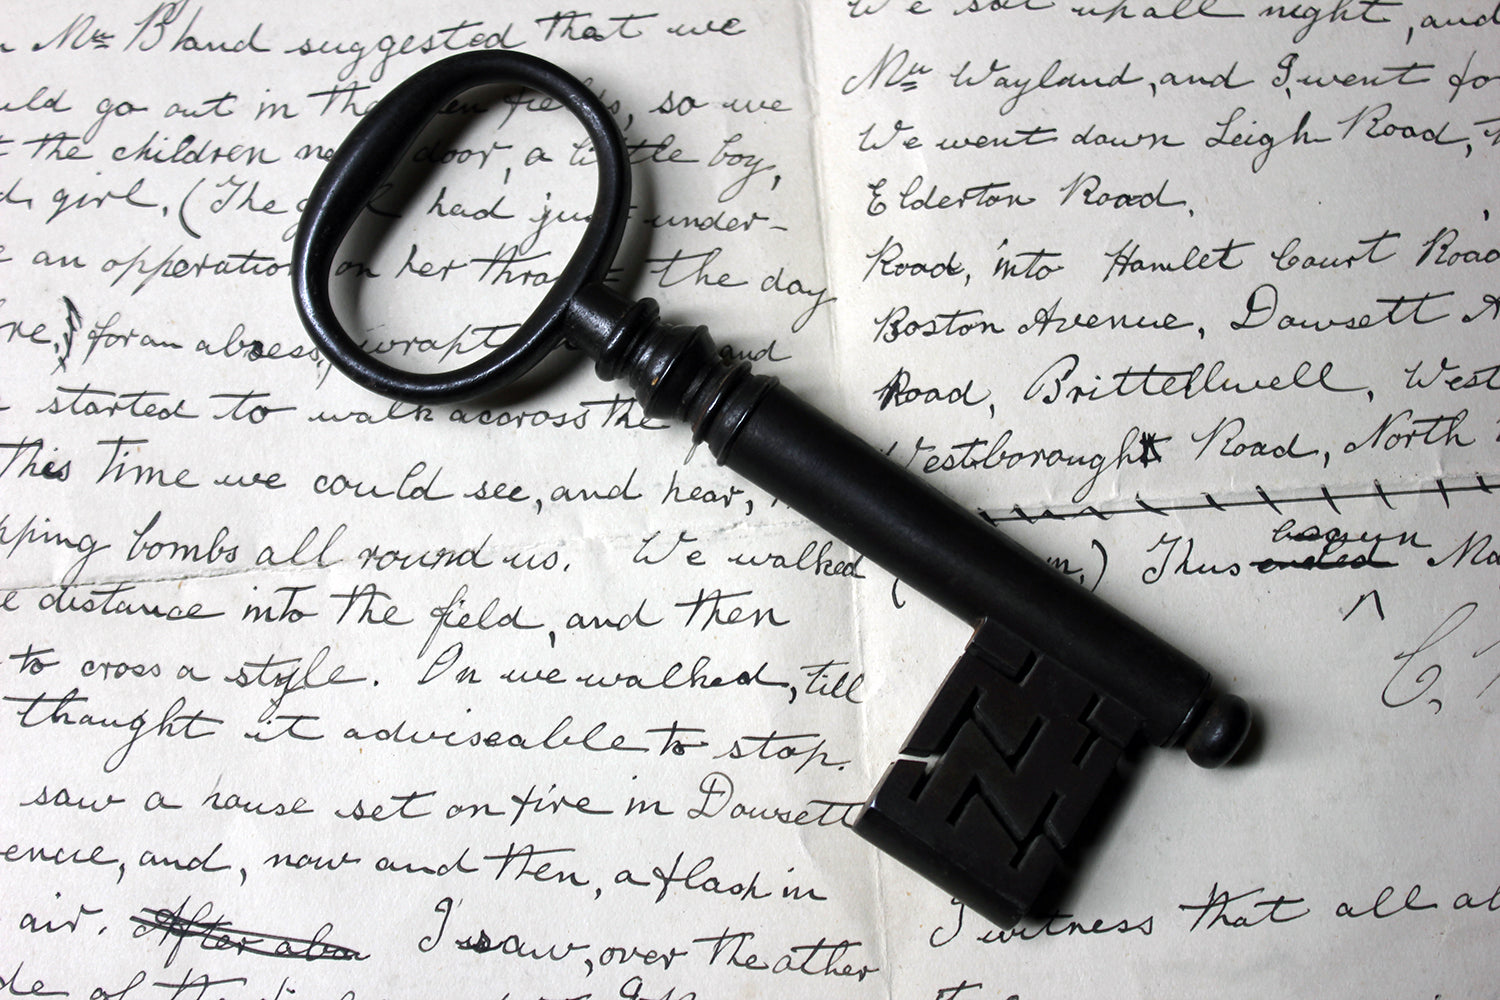 Mrs Bland suggested that we
uld go out in the fields, so we
the children door, a little boy,
d girl. (The had just under-
an opperation on her throat the day
re,) for an abscess, wrapt and
started to walk accross the
this time we could see, and hear,
pping bombs all round us. We walked
e distance into the field, and then
to cross a style. On we walked, till
thought it adviseable to stop.
saw a house set on fire in Dowsett
enue, and, now and then, a flash in
air. After abo I saw, over the other
de of the
We sat up all night, and
Mrs Wayland, and I, went fo
We went down Leigh Road,
Elderton Road,
Road, into Hamlet Court Road
Boston Avenue, Dowsett A
Road, Brittellwell, West
Westborough Road, North
(m.) Thus ended begun Ma
C.
I witness that all al